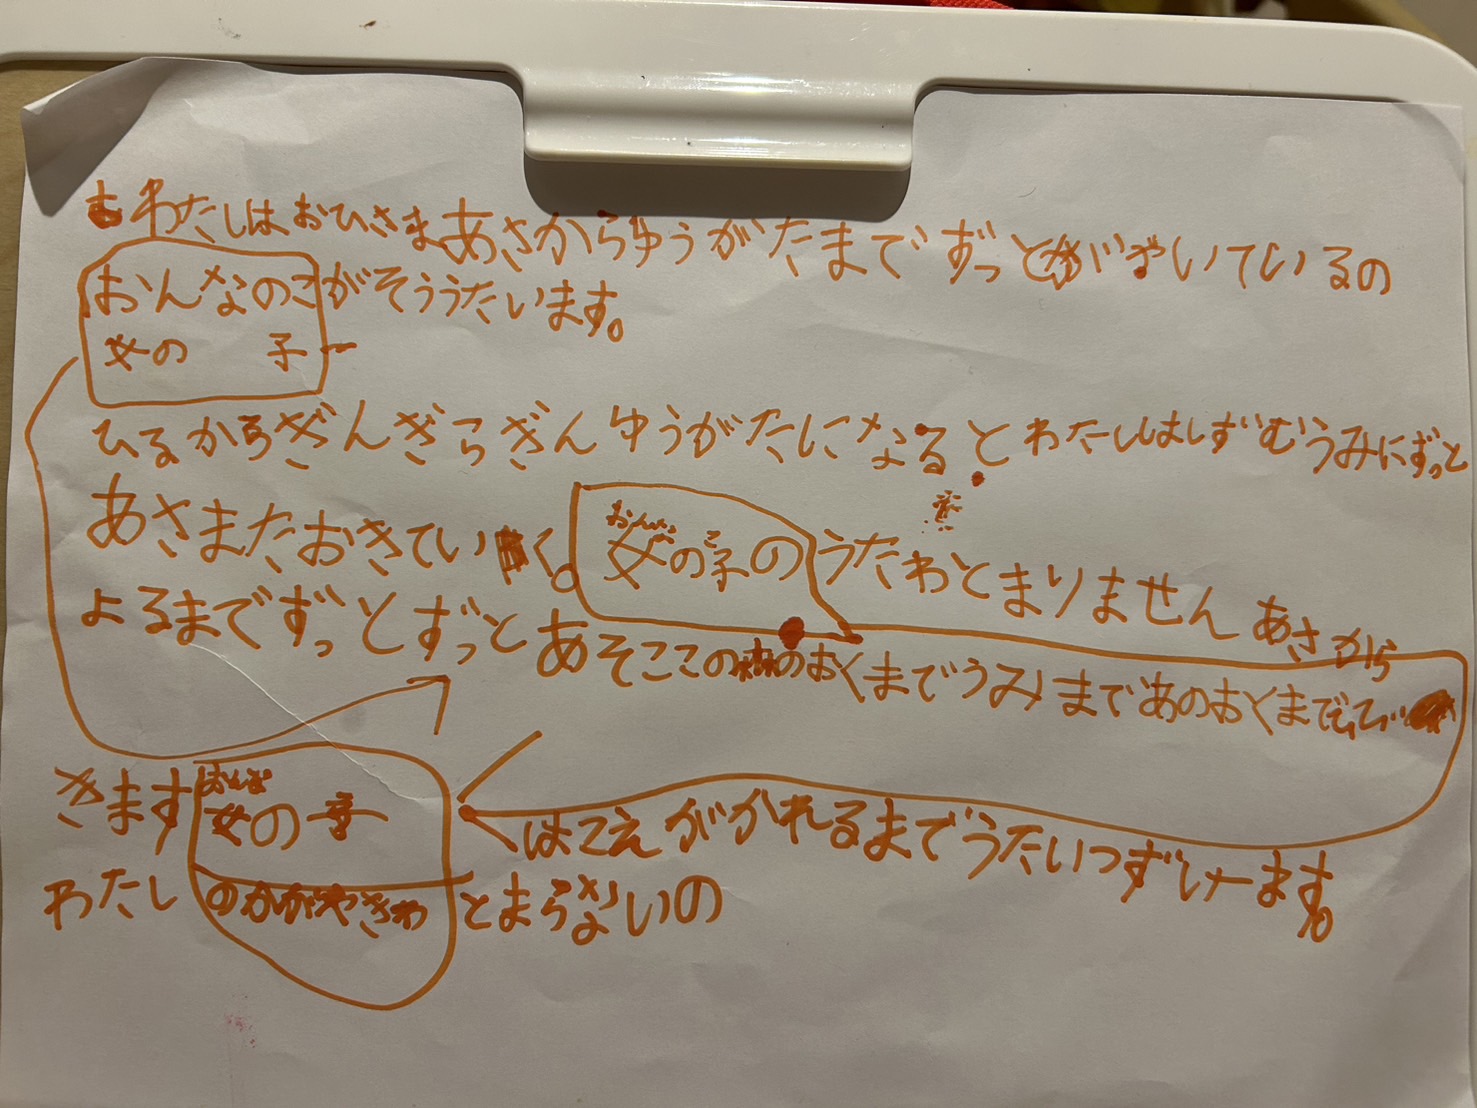 わたしはおひさまあさからゆうがたまでずっとかがやいているの
おんなのこがそううたいます。
女の 子
ひるからぎんぎらぎんゆうがたになるとわたしはしずむうみにずっと
あさまたおきていく。女の子のうたわとまりません あさから
おんな こ
よるまでずっとずっとあそここの森のおくまでうみまであのおくまで
きます 女の子 はこえがかれるまでうたいつずけます。
おんな
わたしのかがやきわとまらないの